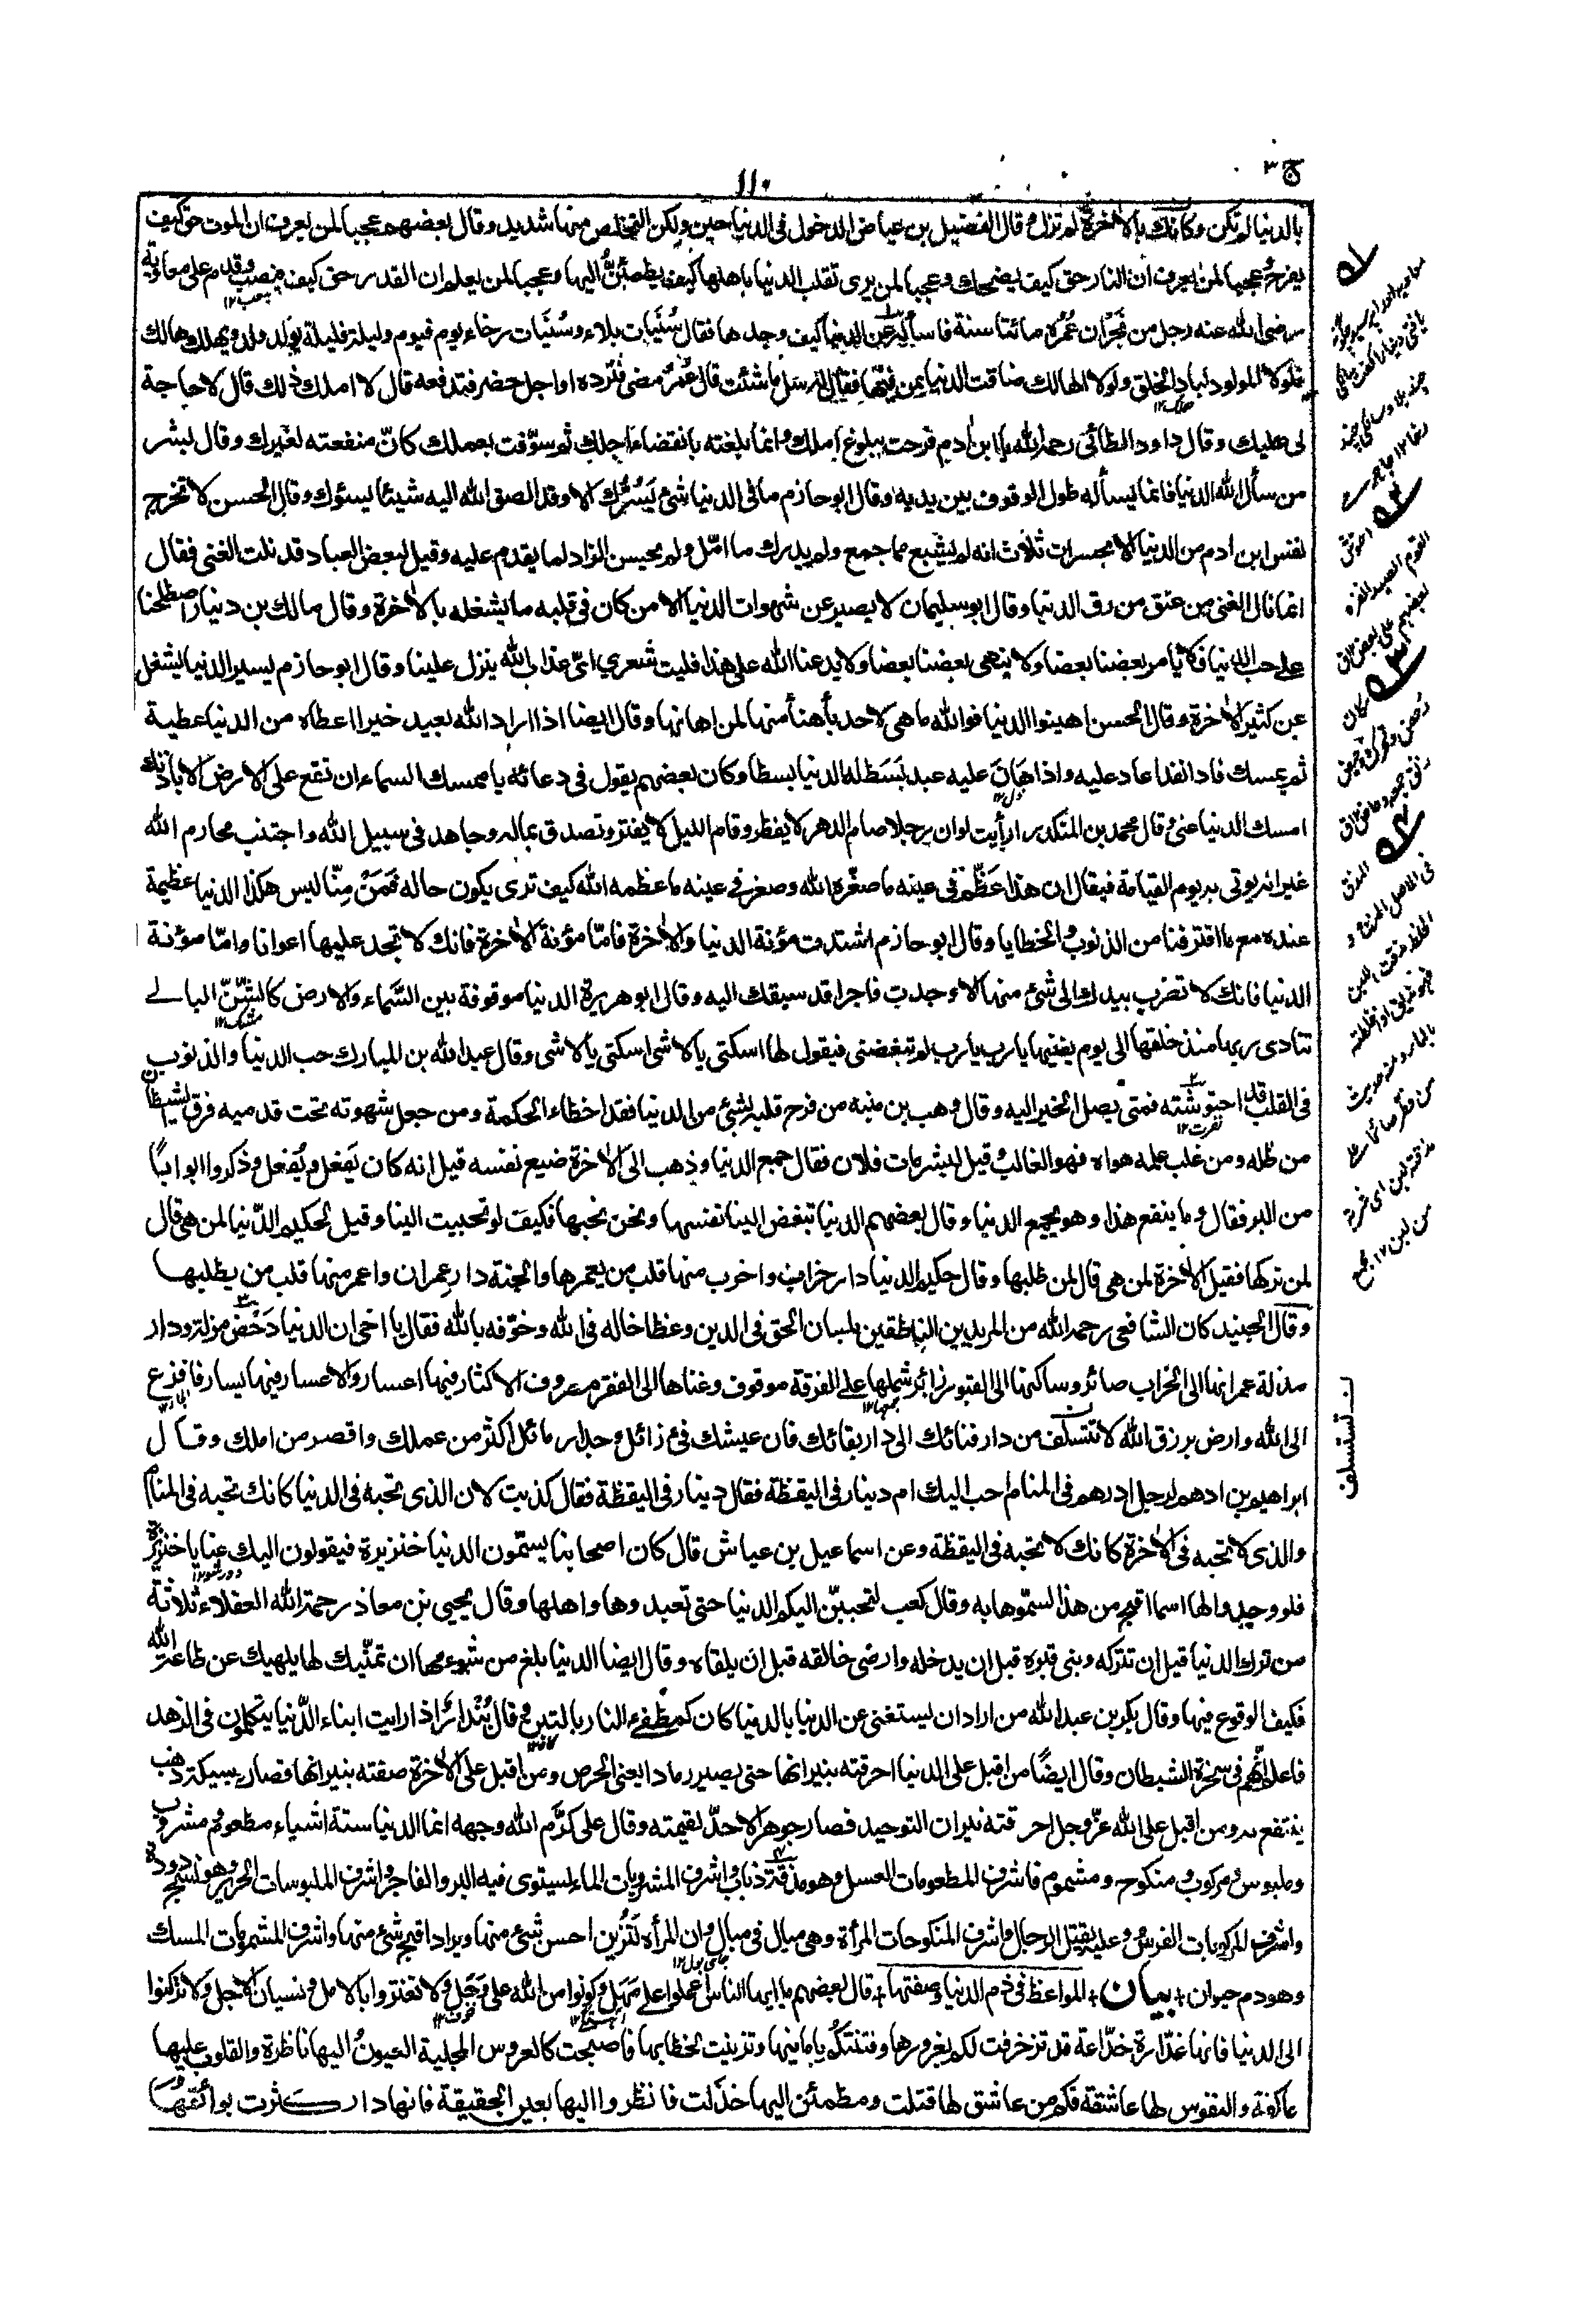 ج ٣
١١٠
بالدنيا لم تكن وكانك بالاخرة لم تزل و قال الفضيل بن عياض الدخول فى الدنيا هين ولكن التخلص منها شديد وقال بعضهم عجبا لمن يعرف ان الموت حق كيف
يفرح و عجبا لمن يعرف ان النار حق كيف يضحك وعجبا لمن يرى تقلب الدنيا باهلها كيف يطمئنُّ اليها وعجبا لمن يعلم ان القدر حق كيف ينصب وقدم على معاوية
رضى الله عنه رجل من نَجْران عُمُرُه مائتا سنة فسأله عن الدنيا كيف وجدها فقال سُنَيَّات بلاء وسُنَيَّات رخاء يوم فيوم وليلة فليلة يولد ولد ويهلك هالك
فلولا المولود لباد الخلق ولولا الهالك ضاقت الدنيا بمن فيها فقال له سل ما شئت قال عُمُرٌ مضى فترده او اجل حضر فتدفعه قال لا املك ذلك قال لا حاجة
لى اليك وقال داود الطائى رحمه الله يا ابن ادم فرحت ببلوغ املك وانما بلغته بانقضاء اجلك ثم سوّفت بعملك كانّ منفعته لغيرك وقال بشر
من سأل الله الدنيا فانما يسأله طول الوقوف بين يديه وقال ابو حازم ما فى الدنيا شئ يَسُرُّك الا وقد الصق الله اليه شيئا يسئوك وقال الحسن لا تخرج
نفس ابن ادم من الدنيا الا بحسرات ثلاث انه لم يشبع مما جمع ولم يدرك ما امّل ولم يحسن الزاد لما يقدم عليه وقيل لبعض العباد قد نلت الغنى فقال
انما نال الغنى من عتق من رق الدنيا وقال ابو سليمان لا يصبر عن شهوات الدنيا الا من كان فى قلبه ما يشغله بالاخرة وقال مالك بن دينار اصطلحنا
على حب الدنيا فلا يأمر بعضنا بعضا ولا ينهى بعضنا بعضا ولا يدعنا الله على هذا فليت شعرى اىّ عذاب الله ينزل علينا وقال ابو حازم يسير الدنيا يشغل
عن كثير الاخرة وقال الحسن اهينوا الدنيا فوالله ما هى لاحد بأهنأ منها لمن اهانها وقال ايضا اذا اراد الله بعبد خيرا اعطاه من الدنيا عطية
ثم يمسك فاذا نفد اعاد عليه واذا هَانَ عليه عبد بَسَطَ له الدنيا بسطا وكان بعضهم يقول فى دعائه يا ممسك السماء ان تقع على الارض الا باذنك
امسك الدنيا عنى و قال محمد بن المنكدر ارأيت لو ان رجلا صام الدهر لا يفطر وقام الليل لا يفتر وتصدق بماله وجاهد فى سبيل الله واجتنب محارم الله
غير انه يؤتى به يوم القيامة فيقال ان هذا عَظُمَ فى عينه ما صغّره الله وصغر فى عينه ما عظمه الله كيف ترى يكون حاله فَمَنْ مِنّا ليس هكذا الدنيا عظيمة
عنده مع ما اقترفنا من الذنوب والخطايا وقال ابو حازم اشتدت مؤنة الدنيا والاخرة فامّا مؤنة الاخرة فانك لا تجد عليها اعوانا وامّا مؤنة
الدنيا فانك لا تضرب بيدك الى شئ منها الا وجدت فاجرا قد سبقك اليه وقال ابو هريرة الدنيا موقوفة بين السَّماء والارض كالشَّنّ البالى
تنادى ربها منذ خلقها الى يوم يفنيها يارب يارب لم تبغضنى فيقول لها اسكتى يا لا شئ اسكتى يا لا شئ وقال عبد الله بن المبارك حب الدنيا والذنوب
فى القلب قد احتوشته فمتى يصل الخير اليه وقال وهب بن منبه من فرح قلبه بشئ من الدنيا فقد اخطاء الحكمة ومن جعل شهوته تحت قدميه فرق الشيطان
من ظله ومن غلب علمه هواه فهو الغالب و قيل لبشر مات فلان فقال جمع الدنيا وذهب الى الاخرة ضيع نفسه قيل انه كان يَفعل ويَفعل و ذكروا ابوابًا
من البر فقال وما ينفع هذا وهو يجمع الدنيا وقال بعضهم الدنيا تبغض الينا نفسها ونحن نحبها فكيف لو تحببت الينا وقيل لحكيم الدّنيا لمن هى قال
لمن تركها فقيل الاخرة لمن هى قال لمن طلبها وقال حكيم الدنيا دار خراب واخرب منها قلب من يعمرها والجنة دار عمران واعمر منها قلب من يطلبها
وقال الجنيد كان الشافعى رحمه الله من المريدين الناطقين بلسان الحق فى الدين وعظ اخا له فى الله وخوّفه بالله فقال يا اخى ان الدنيا دَحْضُ مزلة ودار
مذلة عمرانها الى الخراب صائر وساكنها الى القبور زائر شملها على الفرقة موقوف وغناها الى الفقر معروف الاكثار فيها اعسار والاعسار فيها يسار فافزع
الى الله وارض برزق الله لا تتسلف من دار فنائك الى دار بقائك فان عيشك فئ زائل وجدار مائل اكثر من عملك واقصر من املك وقال
ابراهيم بن ادهم لرجل ادرهم فى المنام احب اليك ام دينار فى اليقظة فقال دينار فى اليقظة فقال كذبت لان الذى تحبه فى الدنيا كانك تحبه فى المنام
والذى لا تحبه فى الاخرة كانك لا تحبه فى اليقظة وعن اسماعيل بن عياش قال كان اصحابنا يسمّون الدنيا خنزيرة فيقولون اليك عنا يا خنزيرة
فلو وجدوا لها اسما اقبح من هذا لسمّوها به وقال كعب لتحببنّ اليكم الدنيا حتى تعبدوها واهلها وقال يحيى بن معاذ رحمه الله العقلاء ثلاثة
من ترك الدنيا قبل ان تتركه وبنى قبره قبل ان يدخله وارضى خالقه قبل ان يلقاه وقال ايضا الدنيا بلغ من شومها ان تمنّيك لها يلهيك عن طاعة الله
فكيف الوقوع فيها وقال بكر بن عبد الله من اراد ان يستغنى عن الدنيا بالدنيا كان كمطفئ النار بالتبن و قال بُنْدار اذا رايت ابناء الدّنيا يتكلمون فى الزهد
فاعلم انّهم فى سخرة الشيطان وقال ايضًا من اقبل على الدنيا احرقته بنيرانها حتى يصير رمادا يعنى الحرص ومن اقبل على الاخرة صفته بنيرانها فصار سبيكة ذهب
ينتفع به ومن اقبل على الله عزّ وجل احرقته نيران التوحيد فصار جوهرا لا حدّ لقيمته وقال على كرَّم الله وجهه انما الدنيا ستة اشياء مطعوم و مشروب
وملبوس و مركوب و منكوح و مشموم فاشرف المطعومات العسل وهو مذقة ذباب واشرف المشروبات الماء يستوى فيه البر والفاجر واشرف الملبوسات الحرير وهو نسج دودة
واشرف المركوبات الفرس وعليه يقتل الرجال واشرف المنكوحات المرأة وهى مبال فى مبال وان المرأة لَتَزَّين احسن شئ منها ويراد اقبح شئ منها واشرف المشمومات المسك
وهو دم حيوان ÷ بيان ÷ المواعظ فى ذم الدنيا وصفتها ÷ قال بعضهم يا ايها الناس اعملوا على مَهَلٍ وكونوا من الله على وَجَلٍ ولا تغتروا بالامل ونسيان الاجل ولا تركنوا
الى الدنيا فانها غدّارة خدّاعة قد تزخرفت لكم بغرورها وفتنتكم بامانيها وتزينت لخطابها فاصبحت كالعروس المجلية العيونُ اليها ناظرة والقلوب عليها
عاكفة والنفوس لها عاشقة فكم من عاشق لها قتلت ومطمئن اليها خذلت فانظروا اليها بعين الحقيقة فانها دار كثرت بوائقها
ن تستسلف